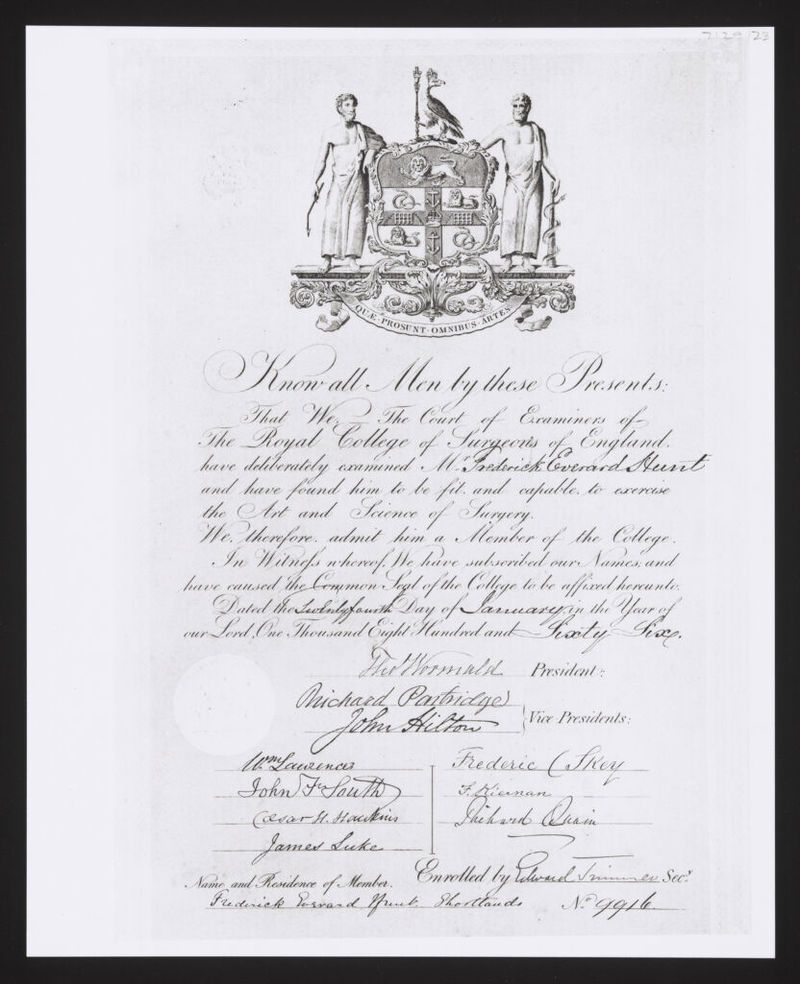 7129 / 23
QUÆ · PROSUNT · OMNIBUS · ARTES
Know all Men by these Presents:
That We, The Court of Examiners of
The Royal College of Surgeons of England.
have deliberately examined Mr. Frederick Everard Hunt
and have found him to be fit, and capable, to exercise
the Art and Science of Surgery.
We, therefore, admit him a Member of the College.
In Witneſs whereof, We have subscribed our Names, and
have caused the Common Seal of the College to be affixed hereunto.
Dated the Twenty fourth Day of January, in the Year of
our Lord, One Thousand Eight Hundred and Sixty Six.
Thos Wormald President:
Richard Partridge
John Hilton Vice Presidents:
Wm Lawrence
John F. South
Cæsar H. Hawkins
James Luke
Frederic C Skey
F. Kiernan
Richard Quain
Enrolled by Edward Trimmer Secy.
Name and Residence of Member.
Frederick Everard Hunt. Shortlands No. 9916